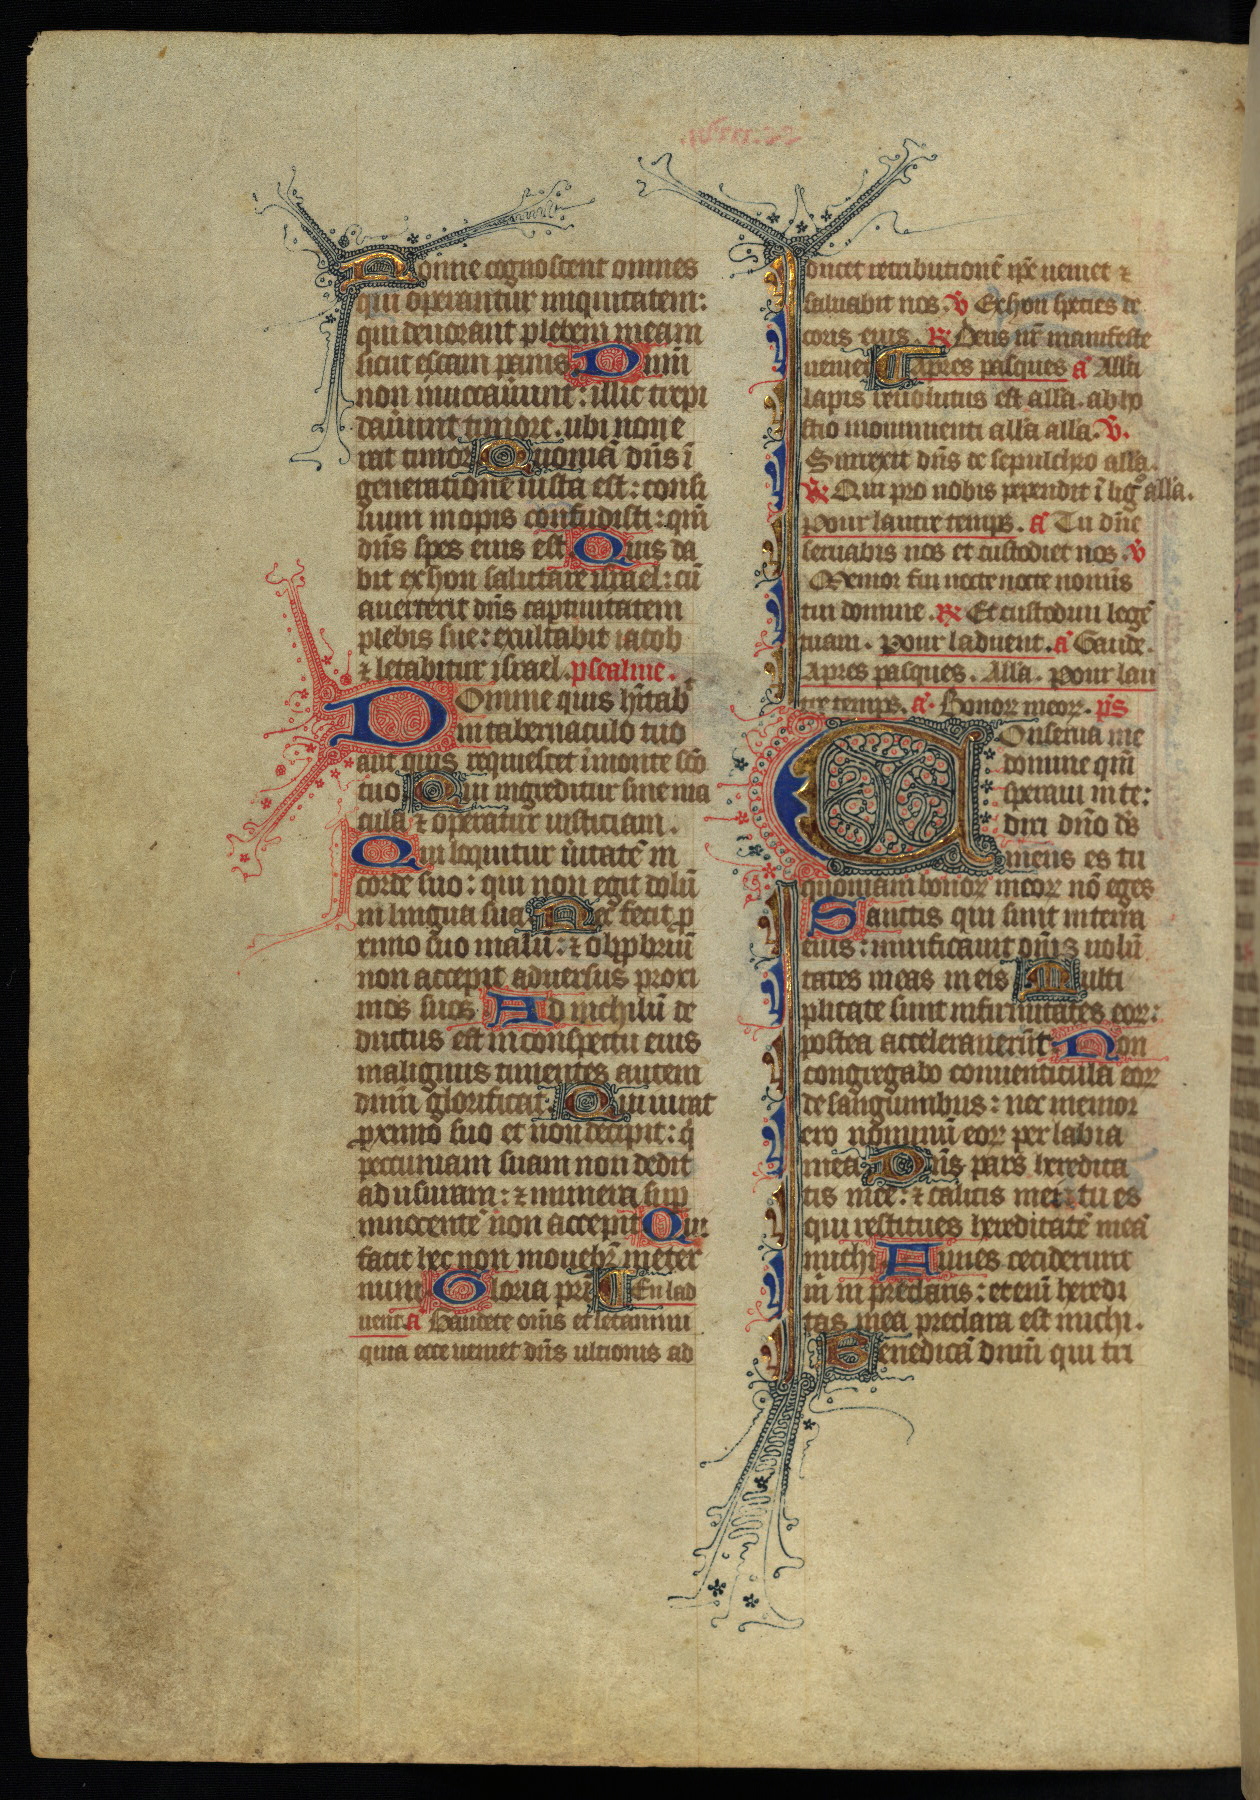 Nonne cognoscent omnes
qui operantur iniquitatem:
qui deuorant plebem meam
sicut escam panis. Dnm̄
non inuocauerunt: illic trepi
dauerunt timore. ubi non e
rat timor. Quoniā dn̄s ī
generatione iusta est: consi
lium inopis confudisti: qm̄
dn̄s spes eius est. Quis da
bit ex syon salutare israel: cū
auerterit dn̄s captiuitatem
plebis sue: exultabit iacob
⁊ letabitur israel. psealme.
Domine quis hītab̄
in tabernaculo tuo
aut quis requiescet ī monte scō
tuo Qui ingreditur sine ma
cula ⁊ operatur iusticiam.
Qui loquitur ūitatē in
corde suo: qui non egit dolū
in lingua sua Nec fecit ꝓ
ximo suo malū: ⁊ obprbriū
non accepit aduersus proxi
mos suos Ad nichilū de
ductus est in conspectu eius
malignus timentes autem
dnm̄ glorificat. Qui iurat
ꝓximo suo et non decipit: q̄
peccuniam suam non dedit
ad usuram: ⁊ munera sup
innocentē non accepit Qui
facit hec non mouebr̄ in eter
num Gloria pr̄i En lad
uent. a Gaudete om̄s et letamini
quia ecce ueniet dn̄s ultionis ad
ducet retributionē ip̄e ueniet ⁊
saluabit nos. v̄ Ex syon species de
coris eius. R̄ Deus nr̄ manifeste
ueniet Apres pasques a Allā
lapis reuolutus est allā. ab ho
stio monumenti allā allā. v̄.
Surrexit dn̄s de sepulchro allā.
R̄ Qui pro nobis pependit ī ligō allā.
Pour lautre temps. a Tu dn̄e
seruabis nos et custodiet nos. v̄
Memor fui nocte nocte nominis
tui domine. R̄ Et custodiui legē
tuam. Pour laduent. a Gaude.
Apres pasques. Allā. Pour lau
tre temps. a. Bonoꝝ meoꝝ. ps̄
Conserua me
domine qm̄
speraui in te:
dixi dn̄o ds̄
meus es tu
quoniam bonoꝝ meoꝝ nō eges
Sanctis qui sunt in terra
eius: mirificauit om̄s uolū
tates meas in eis Multi
plicate sunt infirmitates eoꝝ:
postea accelerauerūt Non
congregabo conuenticula eoꝝ
de sanguinibus: nec memor
ero nominū eoꝝ per labia
mea. Dn̄s pars heredita
tis mee: ⁊ calicis mei: tu es
qui restitues hereditatē meā
michi Funes ceciderunt
m̄ in preclaris: etenī heredi
tas mea preclara est michi.
Benedicā dnm̄ qui tri